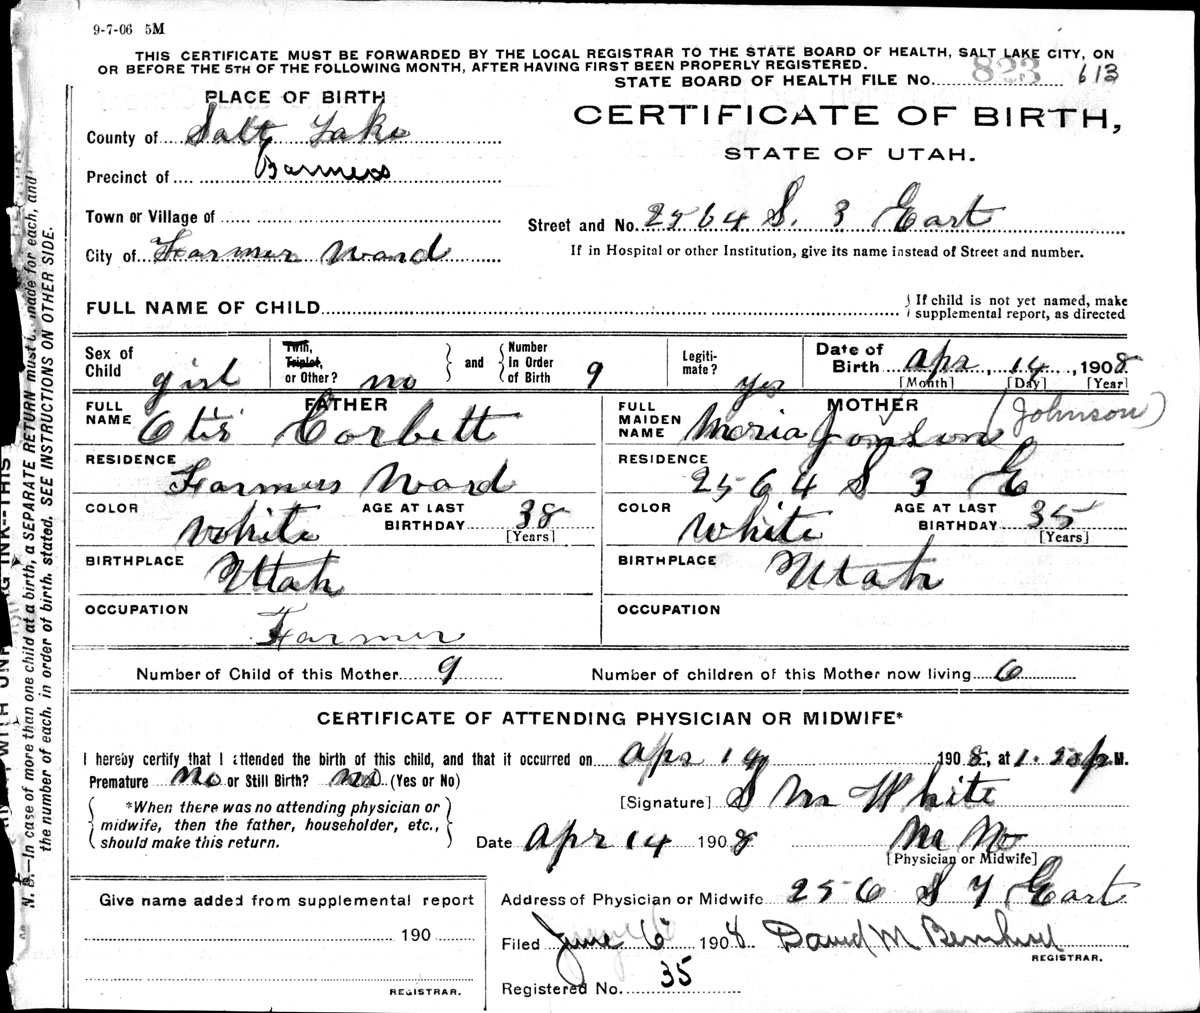 9-7-06 5M
THIS CERTIFICATE MUST BE FORWARDED BY THE LOCAL REGISTRAR TO THE STATE BOARD OF HEALTH, SALT LAKE CITY, ON
OR BEFORE THE 5TH OF THE FOLLOWING MONTH, AFTER HAVING FIRST BEEN PROPERLY REGISTERED.
STATE BOARD OF HEALTH FILE NO. 823 613
PLACE OF BIRTH
CERTIFICATE OF BIRTH,
STATE OF UTAH.
County of Salt Lake
Precinct of Farmers
Town or Village of
Street and No. 2564 S. 3 East
City of Farmer Ward
If in Hospital or other Institution, give its name instead of Street and number.
FULL NAME OF CHILD
If child is not yet named, make
supplemental report, as directed
Sex of Child girl
Twin, Triplet, or Other? no
and Number in Order of Birth 9
Legiti-mate? yes
Date of Birth Apr, 14, 1908
[Month] [Day] [Year]
FATHER
FULL NAME Otis Corbett
MOTHER
FULL MAIDEN NAME Moria Jonson (Johnson)
RESIDENCE Farmers Ward
RESIDENCE 2564 S 3 E
COLOR White AGE AT LAST BIRTHDAY 38 [Years]
COLOR White AGE AT LAST BIRTHDAY 35 [Years]
BIRTHPLACE Utah
BIRTHPLACE Utah
OCCUPATION Farmer
OCCUPATION
Number of Child of this Mother 9 Number of children of this Mother now living 6
CERTIFICATE OF ATTENDING PHYSICIAN OR MIDWIFE*
I hereby certify that I attended the birth of this child, and that it occurred on Apr 14 1908, at 1. P.M.
Premature no or Still Birth? no (Yes or No)
*When there was no attending physician or
midwife, then the father, householder, etc.,
should make this return.
[Signature] S M White
Date Apr 14 1908
[Physician or Midwife]
Address of Physician or Midwife 256 S 7 East
Give name added from supplemental report
190
REGISTRAR.
Filed June 6 1908 David M
REGISTRAR.
Registered No. 35
N. B.—In case of more than one child at a birth, a SEPARATE RETURN must be made for each, and
the number of each, in order of birth, stated. SEE INSTRUCTIONS ON OTHER SIDE.
INK—THIS